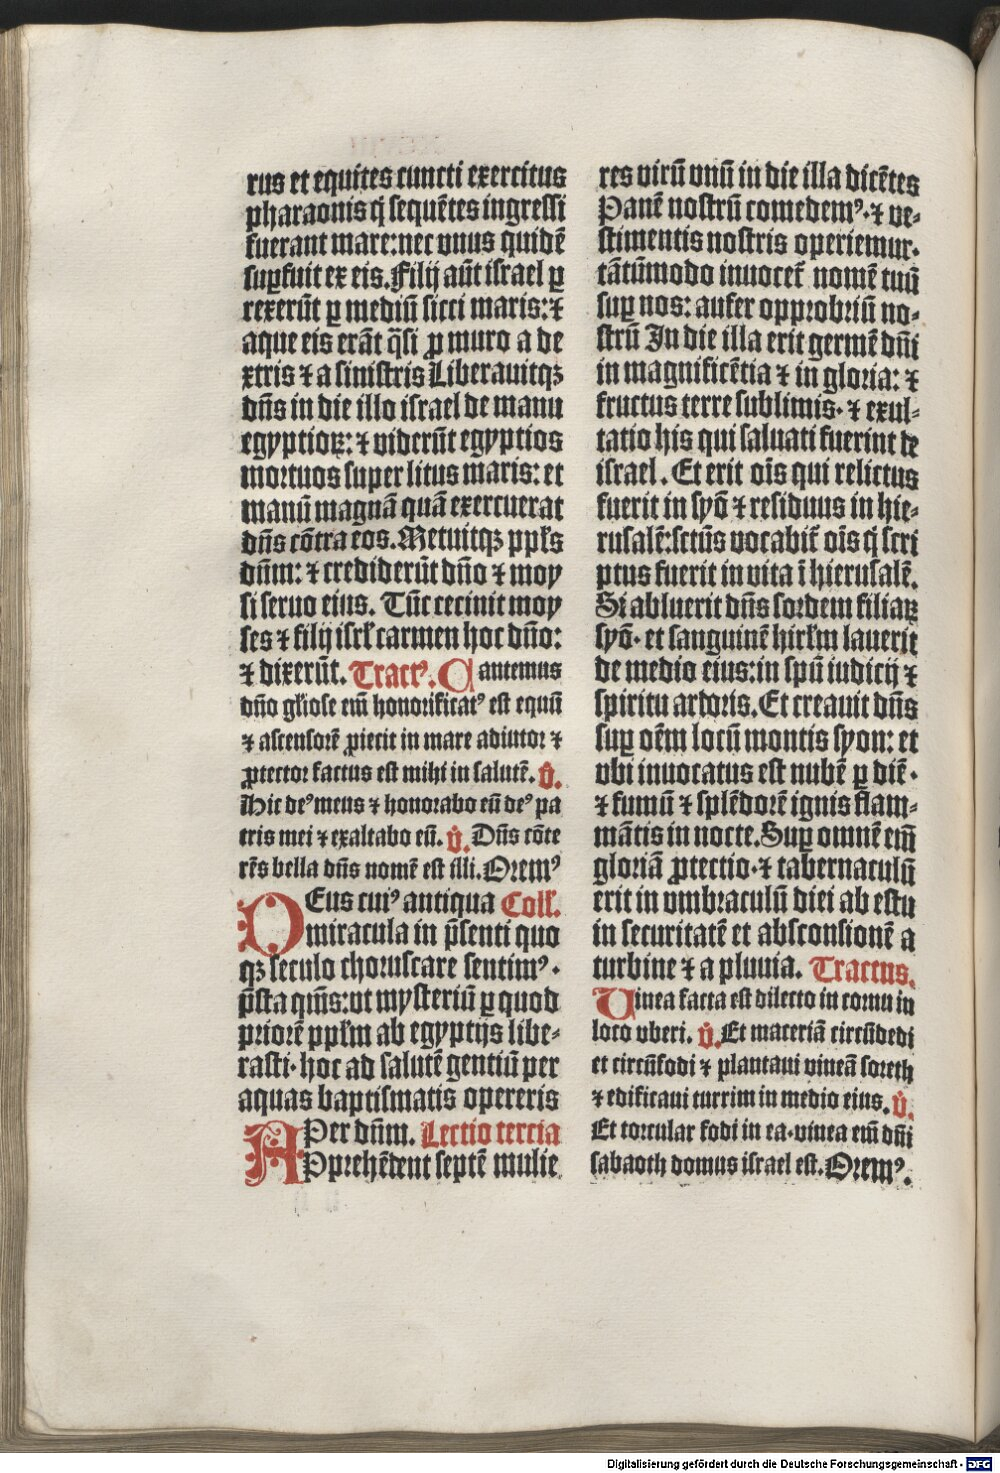 rus et equites cuncti exercitus
pharaonis q̄ sequētes ingressi
fuerant mare: nec vnus quidē
suꝑfuit ex eis. Filij aūt israel ꝑ
rexerūt ꝑ mediū sicci maris: ⁊
aque eis erāt q̄si ꝓ muro a de
xtris ⁊ a sinistris Liberauitqꝫ
dn̄s in die illo israel de manu
egyptioꝝ: ⁊ viderūt egyptios
mortuos super litus maris: et
manū magnā quā exercuerat
dn̄s cōtra eos. Metuitqꝫ ppl̄s
dn̄m: ⁊ crediderūt dn̄o ⁊ moy
si seruo eius. Tūc cecinit moy
ses ⁊ filij isrl̄ carmen hoc dn̄o:
⁊ dixerūt. Tractꝰ. Cantemus
dn̄o gl̄iose em̄ honorificatꝰ est equū
⁊ ascensorē ꝓiecit in mare adiutor ⁊
ꝓtector factus est mihi in salutē. V̄.
Hic deꝰ meus ⁊ honorabo eū deꝰ pa
tris mei ⁊ exaltabo eū. V̄. Dn̄s cōte
rēs bella dn̄s nomē est illi. Oremꝰ
DEus cuiꝰ antiqua Coll̄.
miracula in p̄senti quo
qꝫ seculo choruscare sentimꝰ.
p̄sta q̄ms: vt mysteriū ꝑ quod
priorē ppl̄m ab egyptijs libe-
rasti. hoc ad salutē gentiū per
aquas baptismatis opereris
Per dn̄m. Lectio tercia
APprehēdent septē mulie
res virū vnū in die illa dicētes
Panē nostrū comedemꝰ. ⁊ ve-
stimentis nostris operiemur.
tātūmodo inuocet᷑ nomē tuū
suꝑ nos: aufer opprobriū no-
strū In die illa erit germē dn̄i
in magnificētia ⁊ in gloria: ⁊
fructus terre sublimis. ⁊ exul-
tatio his qui saluati fuerint de
israel. Et erit oīs qui relictus
fuerit in syō ⁊ residuus in hie-
rusalē: sctūs vocabit᷑ oīs q̄ scri
ptus fuerit in vita ī hierusalē.
Si abluerit dn̄s sordem filiaꝝ
syō. et sanguinē hirl̄m lauerit
de medio eius: in spū iudicij ⁊
spiritu ardoris. Et creauit dn̄s
suꝑ oēm locū montis syon: et
vbi inuocatus est nubē ꝑ diē.
⁊ fumū ⁊ splēdorē ignis flam-
mātis in nocte. Suꝑ omnē em̄
gloriā ꝓtectio. ⁊ tabernaculū
erit in vmbraculū diei ab estu
in securitatē et absconsionē a
turbine ⁊ a pluuia. Tractus.
Vinea facta est dilecto in cornu in
loco vberi. V̄. Et maceriā circūdedi
et circūfodi ⁊ plantaui vineā soreth
⁊ edificaui turrim in medio eius. V̄.
Et torcular fodi in ea. vinea em̄ dn̄i
sabaoth domus israel est. Oremꝰ.
Digitalisierung gefördert durch die Deutsche Forschungsgemeinschaft - DFG